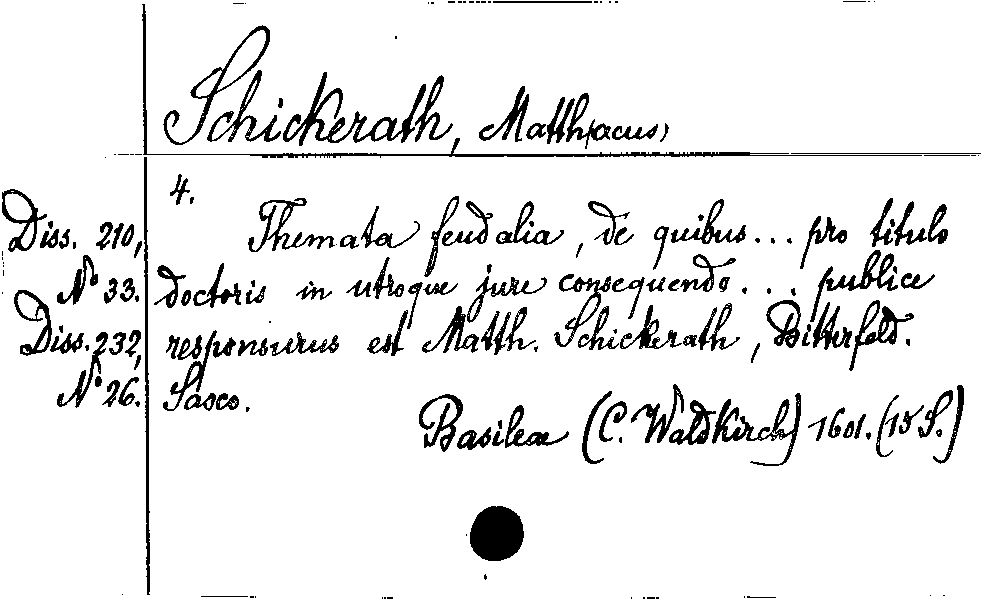 Schickerath, Matth(aeus)
4.
Diss. 210, Themata feudalia, de quibus... pro titulo
No 33. doctoris in utroque jure consequendo... publice
Diss. 232, responsurus est Matth. Schickerath, Bitterfeld.
No 26. Saxo.
Basileae (C. Waldkirch) 1601. (15 S.)